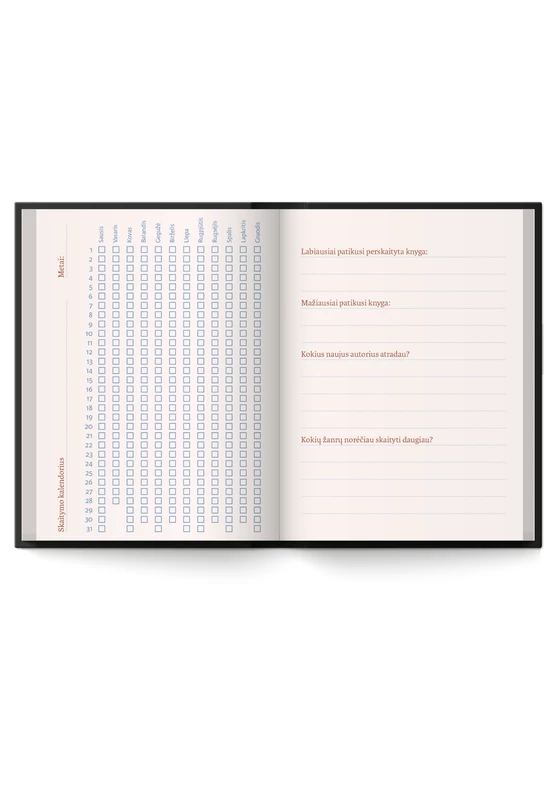 Metai:
Skaitymo kalendorius
Sausis
Vasaris
Kovas
Balandis
Gegužė
Birželis
Liepa
Rugpjūtis
Rugsėjis
Spalis
Lapkritis
Gruodis
1
2
3
4
5
6
7
8
9
10
11
12
13
14
15
16
17
18
19
20
21
22
23
24
25
26
27
28
29
30
31
Labiausiai patikusi perskaityta knyga:
Mažiausiai patikusi knyga:
Kokius naujus autorius atradau?
Kokių žanrų norėčiau skaityti daugiau?